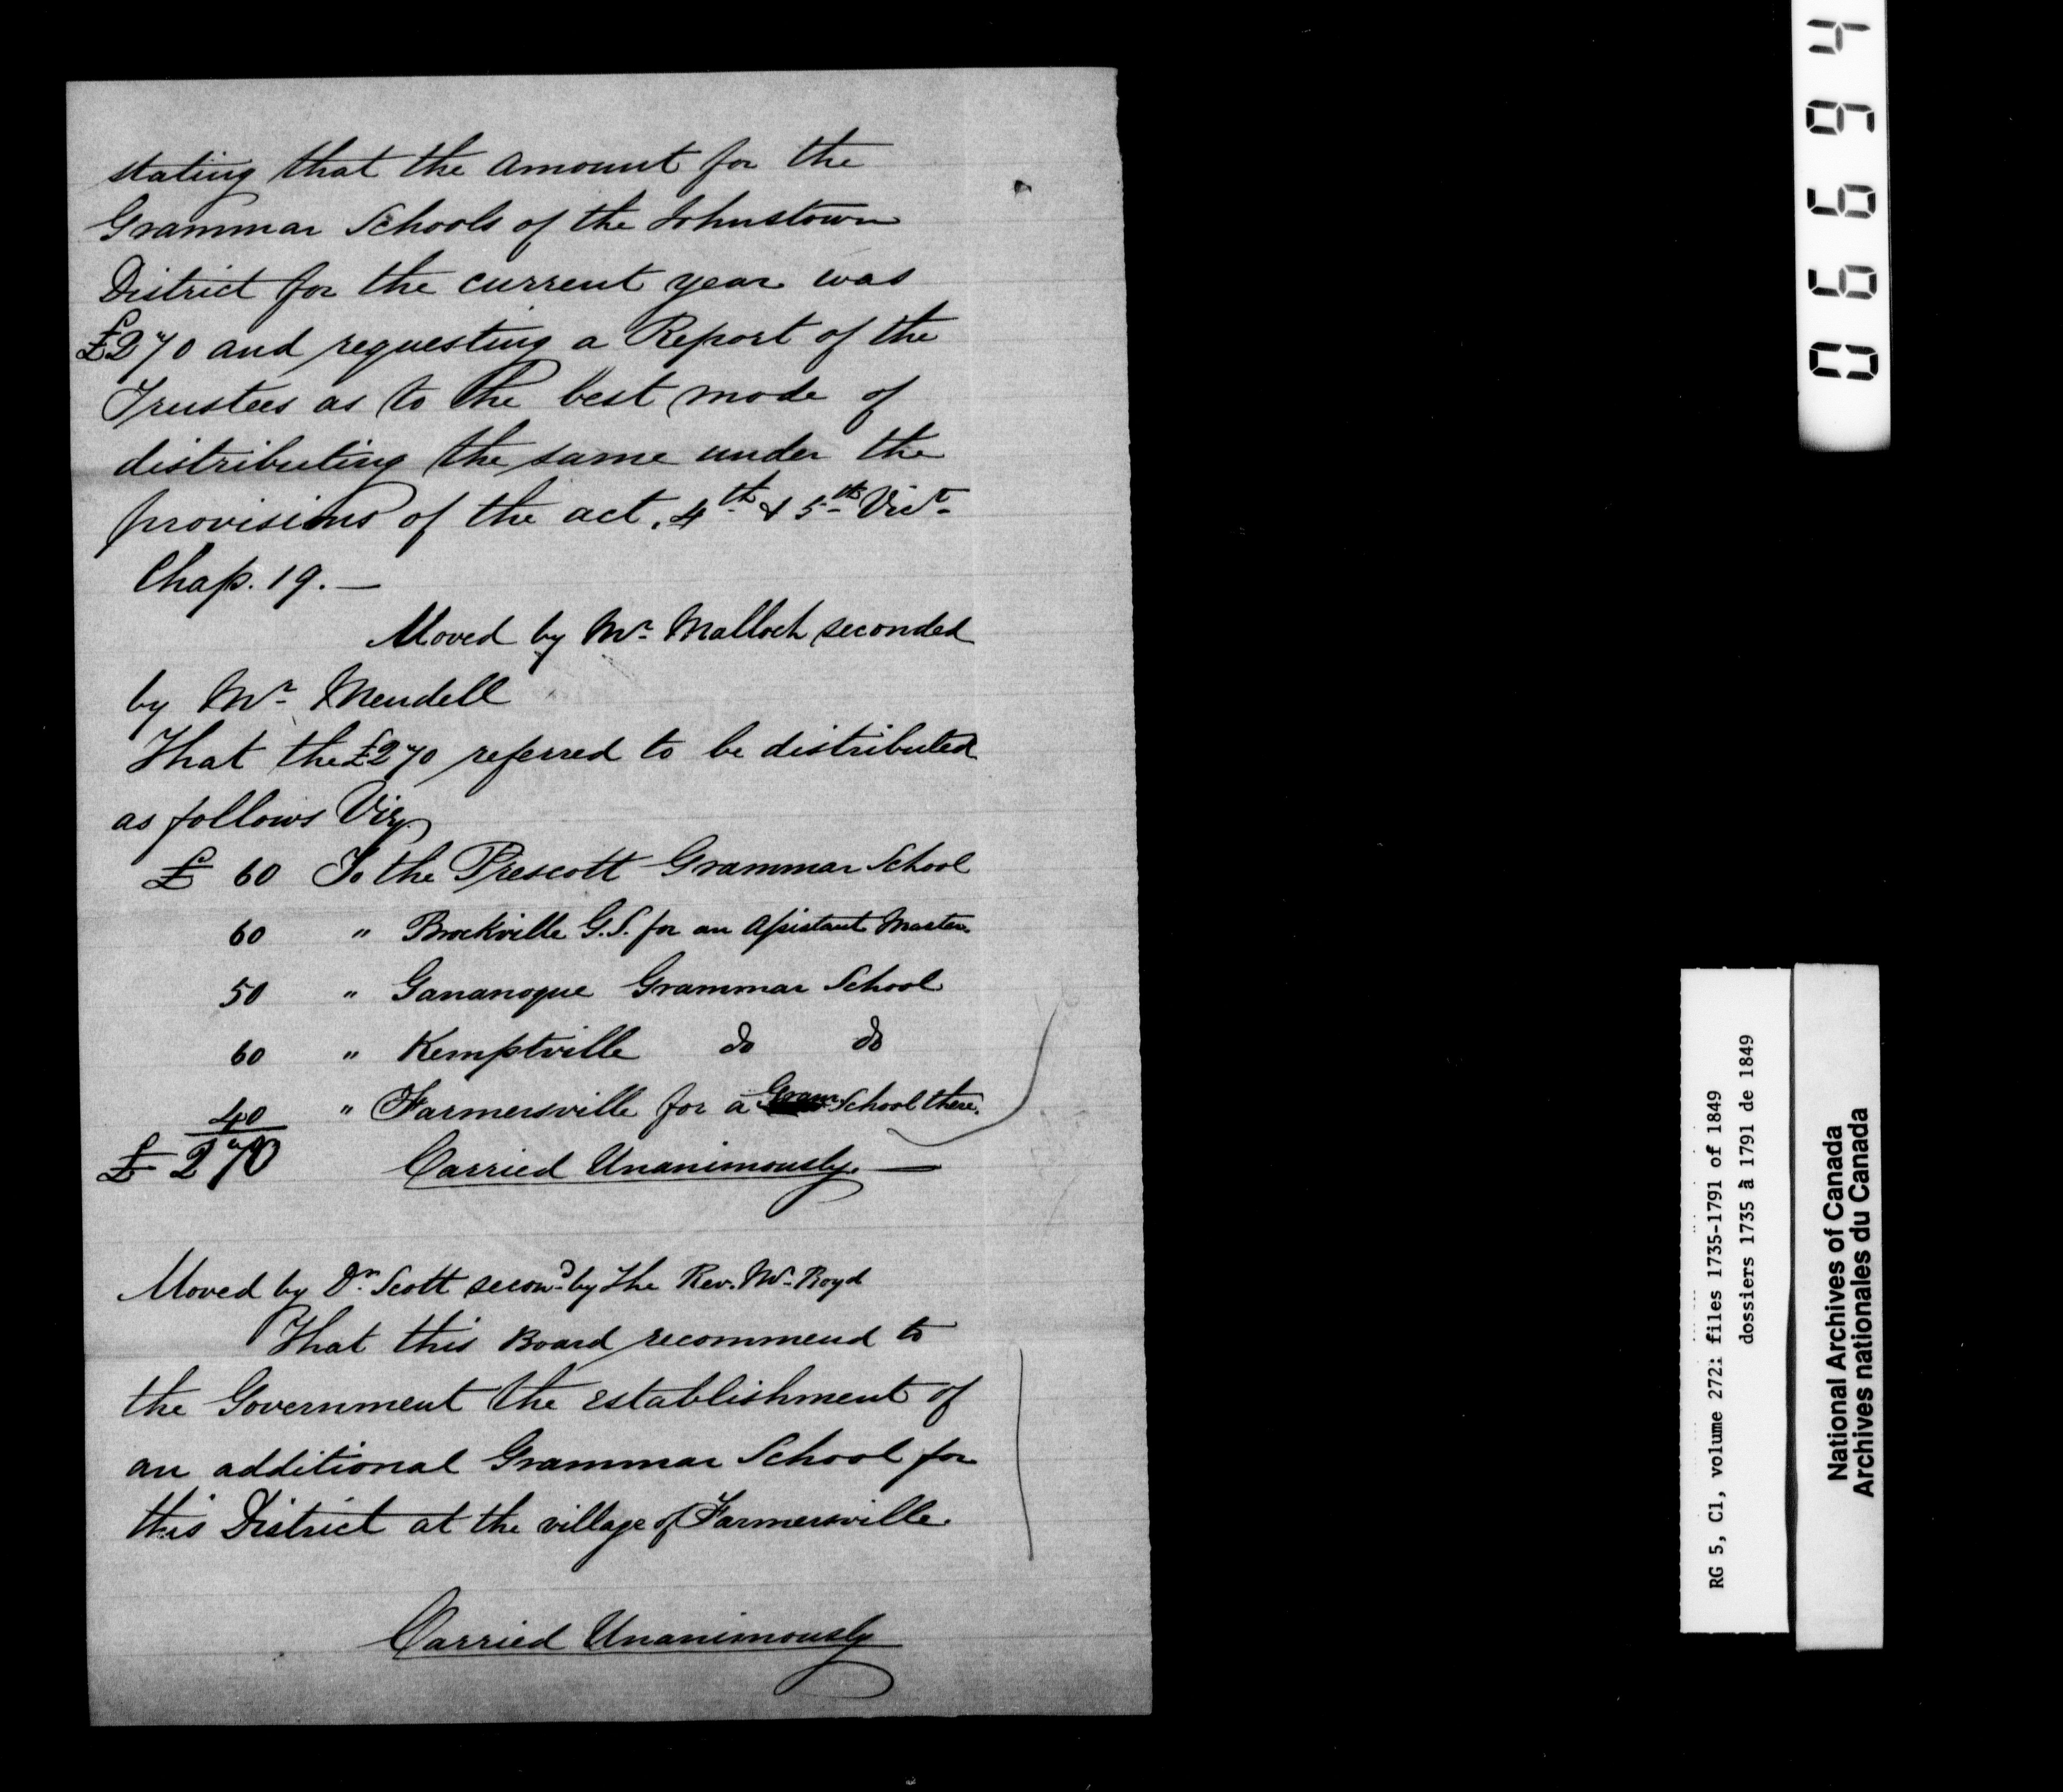 stating that the amount for the
Grammar Schools of the Johnstown
District for the current year was
£270 and requesting a Report of the
Trustees as to the best mode of
distributing the same under the
provisions of the act. 4th & 5th Vict
Chap. 19. —
Moved by Mr Malloch seconded
by Mr Mendell
That the £270 referred to be distributed
as follows Viz
£ 60 To the Prescott Grammar School
60 " Brockville G.S. for an Assistant Master
50 " Gananoque Grammar School
60 " Kemptville do do
40 " Farmersville for a Gram School there.
£ 270 Carried Unanimously. —
Moved by Dr Scott second by the Rev. Mr Boyd
That this Board recommend to
the Government the establishment of
an additional Grammar School for
this District at the village of Farmersville.
Carried Unanimously
06694
RG 5, C1, volume 272: files 1735-1791 of 1849
dossiers 1735 à 1791 de 1849
National Archives of Canada
Archives nationales du Canada